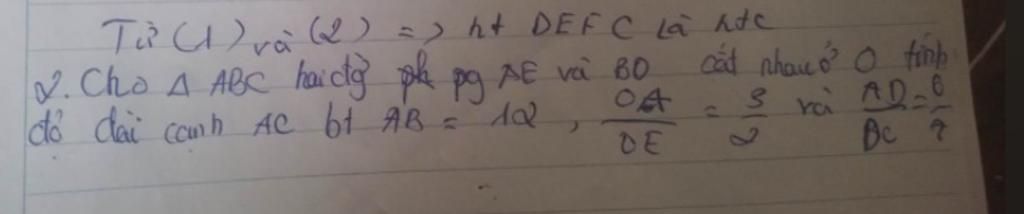 Từ (1) và (2) => ht DEFC là htc
2. Cho Δ ABC hai đg ph pg AE và BD cắt nhau ở O tính
độ dài cạnh AC bt AB = 12, OA/OE = 3/2 và AD/BC = 6/7